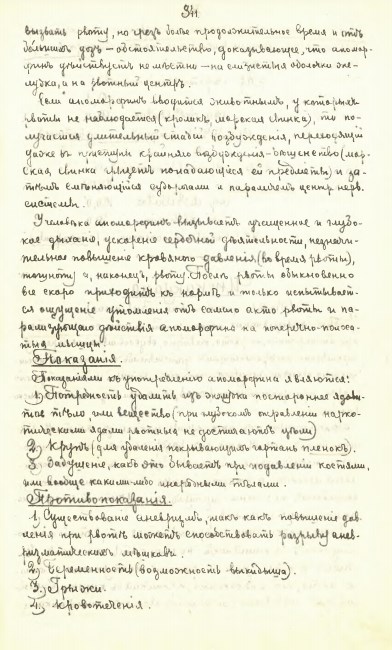 34
вызвать рвоту, но чрезъ болѣе продолжительное время и отъ
большихъ дозъ – обстоятельство, доказывающее, что апомор-
финъ дѣйствуетъ не мѣстно – на слизистыя оболочки же-
лудка, и на рвотный центръ.
Если апоморфинъ вводится животнымъ, у которыхъ
рвоты не наблюдается (кроликъ, морская свинка), то по-
лучается длительный стадій возбужденія, переходящій
даже въ приступы крайняго возбужденія – бѣшенство (мор-
ская свинка грызетъ попадающіеся ей предметы) и за-
тѣмъ смѣняющійся судорогами и параличемъ центр. нерв.
системы.
У человѣка апоморфинъ вызываетъ учащенное и глубо-
кое дыханіе, ускореніе сердечной дѣятельности, незначи-
тельное повышеніе кровяного давленія (во время рвоты),
тошноту и, наконецъ, рвоту. Послѣ рвоты обыкновенно
все скоро приходитъ къ нормѣ и только испытывает-
ся ощущеніе утомленія отъ самаго акта рвоты и па-
рализующаго дѣйствія апоморфина на поперечно-полоса-
тыя мышцы.
Показанія.
Показаніями къ употребленію апоморфина являются:
1) Потребность удалить изъ желудка постороннее ядови-
тое тѣло или вещество (при глубокомъ отравленіи нарко-
тическими ядами рвотныя не достигаютъ цѣли)
2) Крупъ (для удаленія покрывающихъ гортань пленокъ).
3) Удушение, какъ это бываетъ при подавленіи костями,
или вообще какими-либо инородными тѣлами.
Противопоказанія.
1) Существованіе аневризмъ, такъ какъ повышеніе дав-
ленія при рвотѣ можетъ способствовать разрыву анев-
ризматическихъ мѣшковъ.
2) Беременность (возможность выкидыша).
3) Грыжи.
4) кровотеченія.